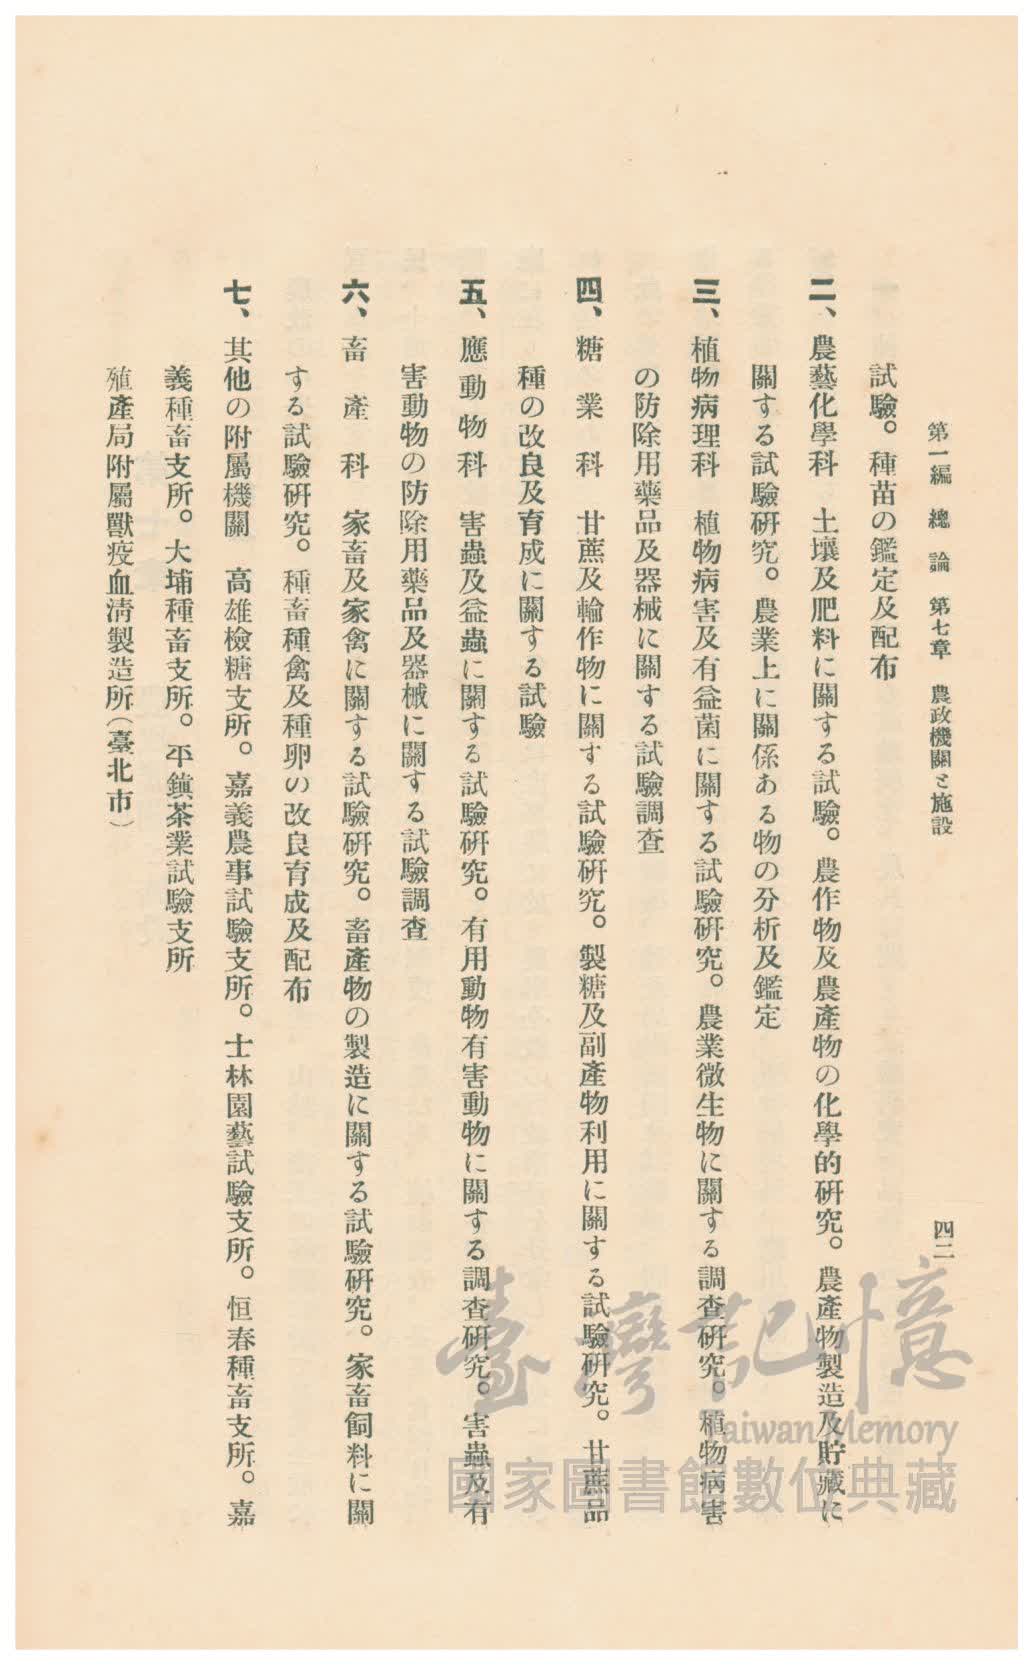 第一編 總論 第七章 農政機關と施設
四二
試驗。種苗の鑑定及配布
二、農藝化學科 土壤及肥料に關する試驗。農作物及農產物の化學的硏究。農產物製造及貯藏に
關する試驗硏究。農業上に關係ある物の分析及鑑定
三、植物病理科 植物病害及有益菌に關する試驗硏究。農業微生物に關する調査硏究。植物病害
の防除用藥品及器械に關する試驗調査
四、糖業科 甘蔗及輪作物に關する試驗硏究。製糖及副產物利用に關する試驗硏究。甘蔗品
種の改良及育成に關する試驗
五、應動物科 害蟲及益蟲に關する試驗硏究。有用動物有害動物に關する調査硏究。害蟲及有
害動物の防除用藥品及器械に關する試驗調査
六、畜產科 家畜及家禽に關する試驗硏究。畜產物の製造に關する試驗硏究。家畜飼料に關
する試驗硏究。種畜種禽及種卵の改良育成及配布
七、其他の附屬機關 高雄檢糖支所。嘉義農事試驗支所。士林園藝試驗支所。恒春種畜支所。嘉
義種畜支所。大埔種畜支所。平鎭茶業試驗支所
殖產局附屬獸疫血淸製造所(臺北市)
臺灣記憶
Taiwan Memory
國家圖書館數位典藏